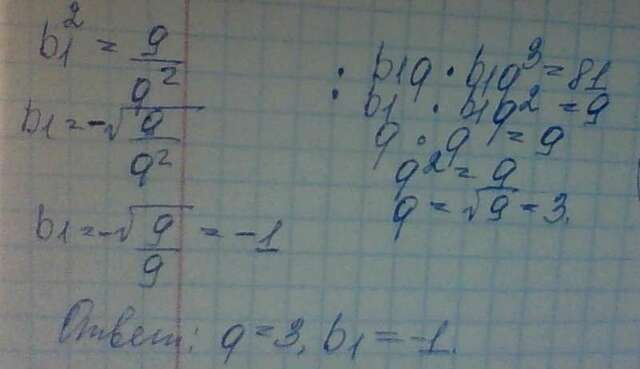 b₁² = 9/q²
b₁ = -√(9/q²)
b₁ = -√(9/9) = -1
: b₁q · b₁q³ = 81
b₁ · b₁q² = 9
q · q = 9
q² = 9
q = √9 = 3.
Ответ: q = 3, b₁ = -1.